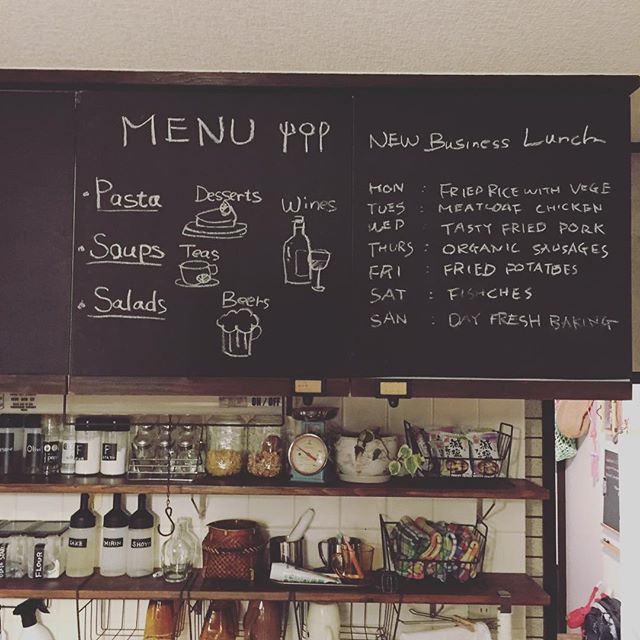 MENU
Pasta
Desserts
Wines
Soups
Teas
Salads
Beers
NEW Business Lunch
MON : FRIED RICE WITH VEGE
TUES : MEATLOAF CHICKEN
WED : TASTY FRIED PORK
THURS : ORGANIC SAUSAGES
FRI : FRIED POTATOES
SAT : FISHCHES
SAN : DAY FRESH BAKING
ON / OFF
F
F
SAKE
MIRIN
SHOYU
FLOUR